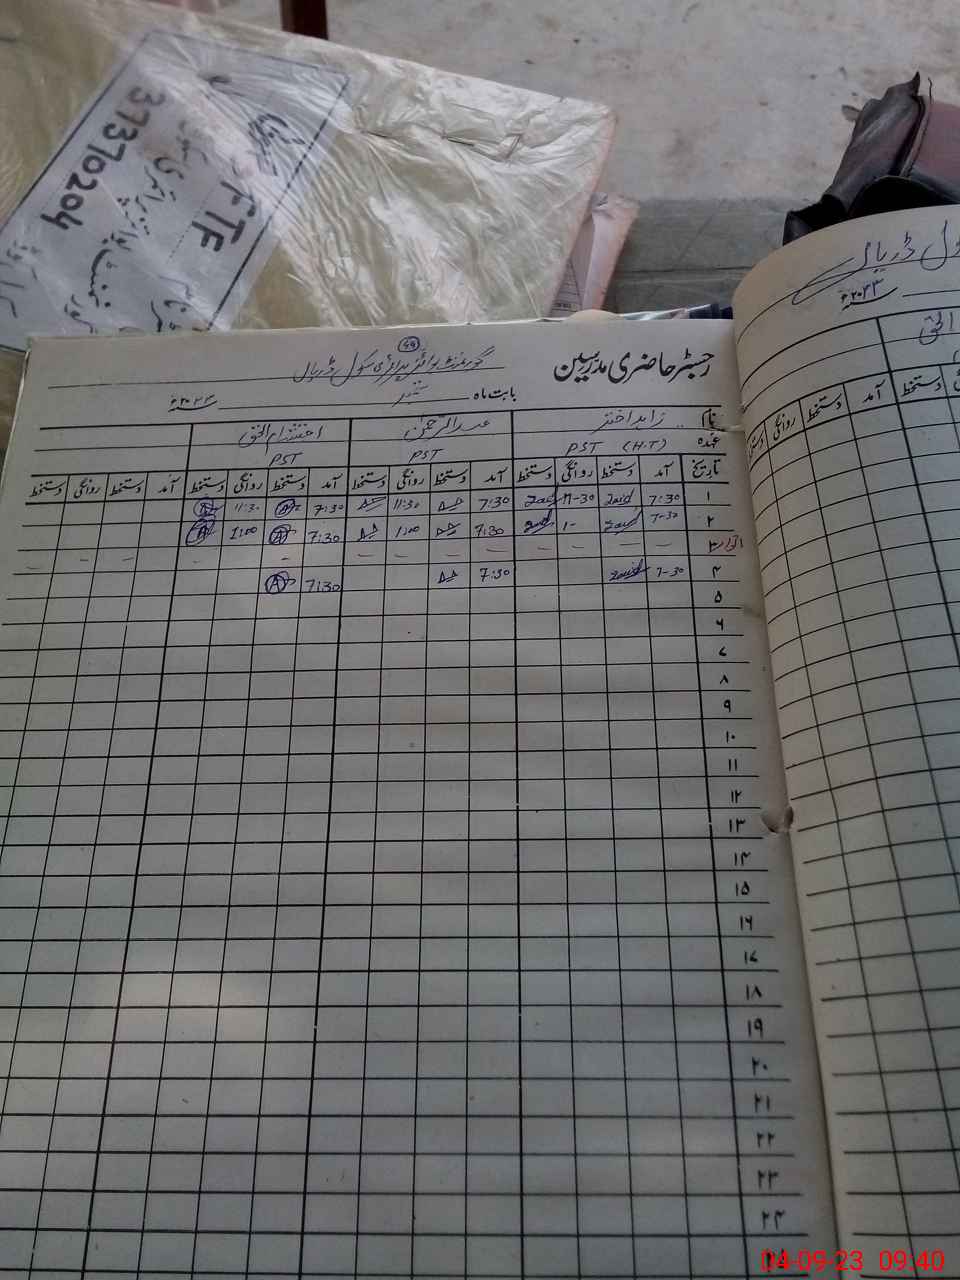 37370204
FTF
49
رجسٹر حاضری مدرسین
گورنمنٹ بوائز پرائمری سکول ڈریال
بابت ماہ ستمبر ۲۰۲۳ء
نام زاہد اختر عبدالرحمٰن احتشام الحق
عہدہ PST (H.T) PST PST
تاریخ آمد دستخط روانگی دستخط آمد دستخط روانگی دستخط آمد دستخط روانگی دستخط آمد دستخط روانگی دستخط
۱ 7:30 Zaid 11-30 Zaid 7:30 11:30 7:30 A 11:30 A
۲ 7-30 Zaid 1- Zaid 7:30 1:00 7:30 A 1:00 A
۳ اتوار — — — — — — — — — — —
۴ 7-30 Zaid 7:30 7:30 A
۵
۶
۷
۸
۹
۱۰
۱۱
۱۲
۱۳
۱۴
۱۵
۱۶
۱۷
۱۸
۱۹
۲۰
۲۱
۲۲
۲۳
۲۴
سکول ڈریال
۲۰۲۳ء
الحق
دستخط آمد دستخط روانگی
04-09-23 09:40